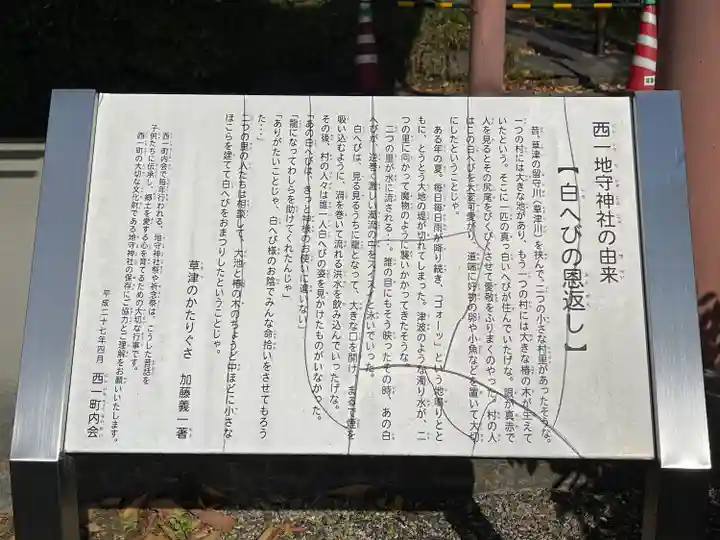 西一地守神社の由来
【白へびの恩返し】
昔、草津の留守川(草津川)を挟んで二つの小さな村里があったそうな。
一つの村には大きな池があり、もう一つの村には大きな椿の木が生えて
いたという。そこに一匹の真っ白いへびが住んでいたげな。眼が真赤で
人を見るとその尻尾をぴくぴくさせて愛敬をふりまくのやった。村の人
はこの白へびを大変可愛がり、道端に好物の卵や小魚などを置いて大切
にしたということじゃ。
ある年の夏。毎日毎日雨が降り続き、「ゴォーッ」という地鳴りとと
もに、とうとう大地の堤が切れてしまった。津波のような濁り水が、二
つの里に向かって魔物のように襲いかかってきたそうな。
二つの里が水に流される!。誰の目にもそう映ったその時、あの白
へびが、逆巻く激しい濁流の中をスイスイと泳いでいった。
白へびは、見る見るうちに龍となって、大きな口を開け、まるで煙を
吸い込むように、渦を巻いて流れる洪水を飲み込んでいったげな。
その後、村の人々は誰一人白へびの姿を見かけたものがいなかった。
「あの白へびは、きっと神様のお使いに違いない」
「龍になってわしらを助けてくれたんじゃ」
「ありがたいことじゃ、白へび様のお陰でみんな命拾いをさせてもろう
た・・・」
二つの里の人たちは相談して、大池と椿の木のちょうど中ほどに小さな
ほこらを建てて白へびをおまつりしたということじゃ。
草津のかたりぐさ 加藤義一著
西一町内会で毎年行われる、地守神社祭や祈念祭は、こうした昔話を
子供たちに伝承し、郷土を愛する心を育てるための大切な行事です。
西一町の大切な文化財である地守神社の保存にご協力とご理解をお願いいたします。
平成二十七年四月 西一町内会